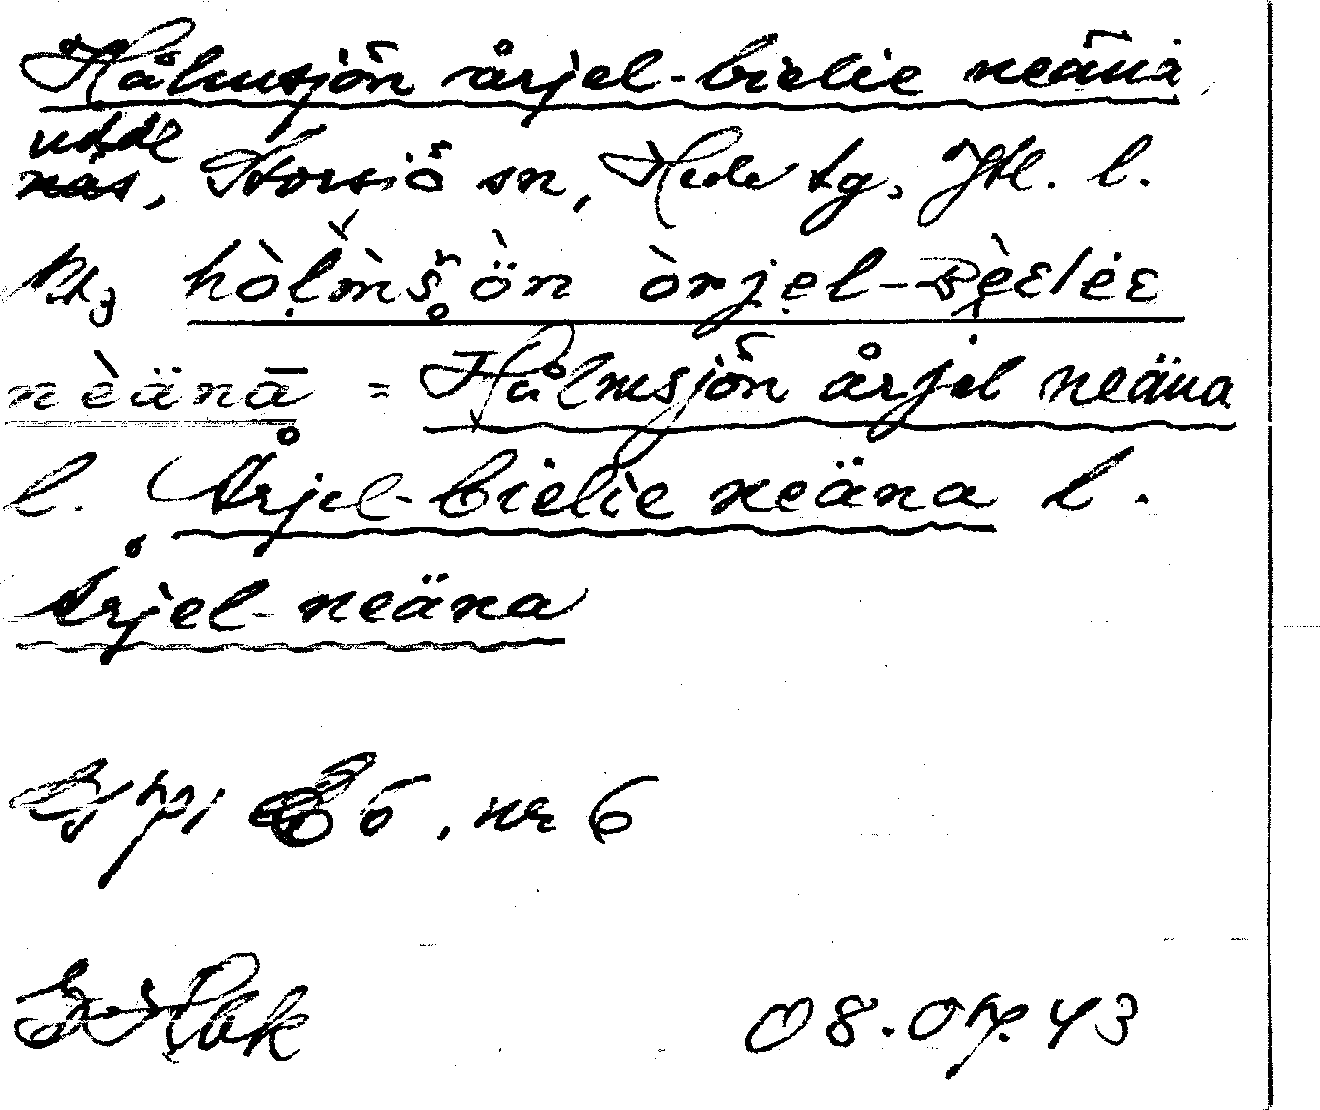 Hålmsjön årjel-bielie neäna
udde
näs, Storsjö sn, Hede tg, Jtl. l.
hòlmšön òrjel-
nèänā = Hålmsjön årjel neäna
l. Årjel-bielie neäna l.
Årjel-neäna
nr 6
08.07.43